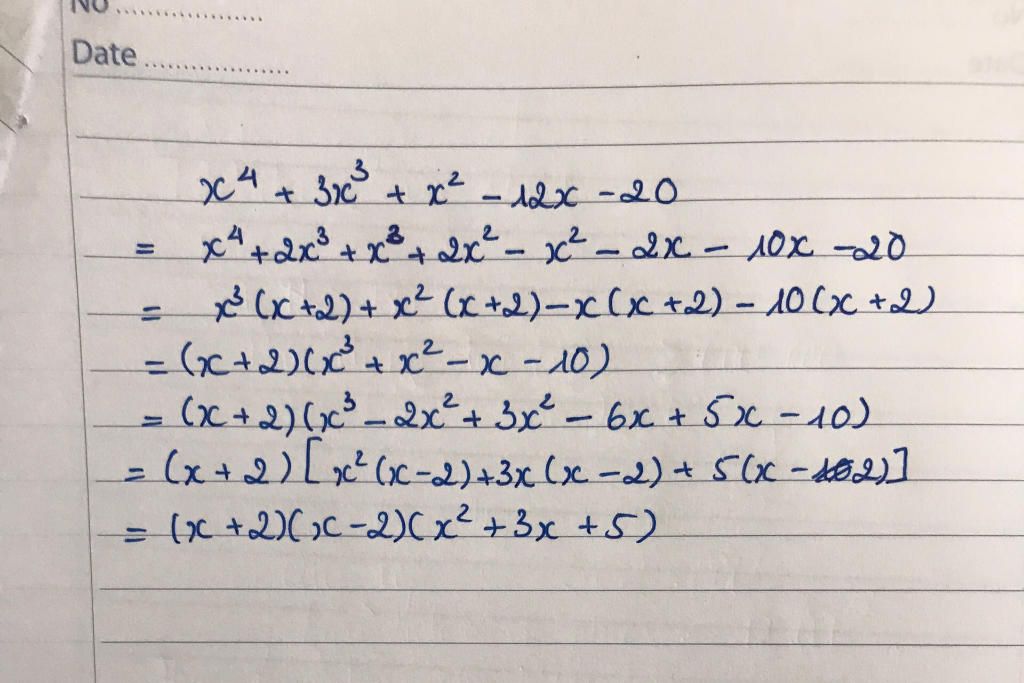 No ....................
Date ....................
x⁴ + 3x³ + x² - 12x - 20
= x⁴ + 2x³ + x³ + 2x² - x² - 2x - 10x - 20
= x³ (x + 2) + x² (x + 2) - x (x + 2) - 10 (x + 2)
= (x + 2) (x³ + x² - x - 10)
= (x + 2) (x³ - 2x² + 3x² - 6x + 5x - 10)
= (x + 2) [x² (x - 2) + 3x (x - 2) + 5 (x - 2)]
= (x + 2) (x - 2) (x² + 3x + 5)